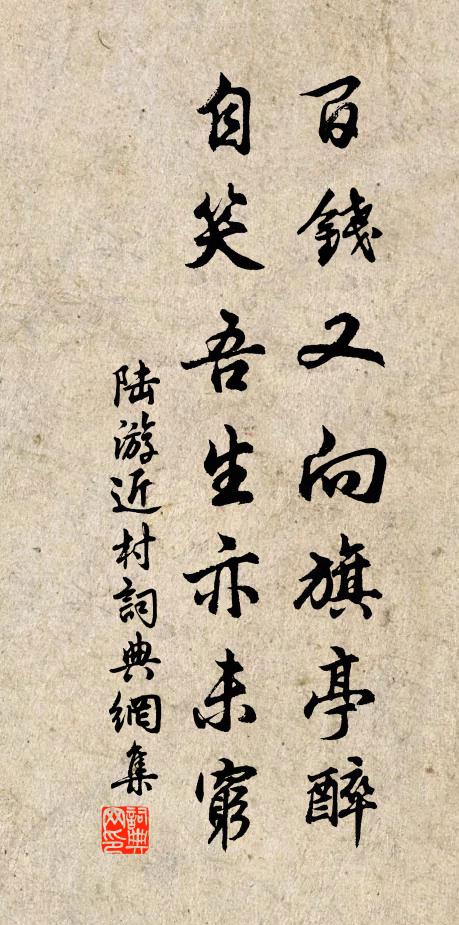 百錢又向旗亭醉
自笑吾生亦未窮
陸游近村詞典網集
詞典網印